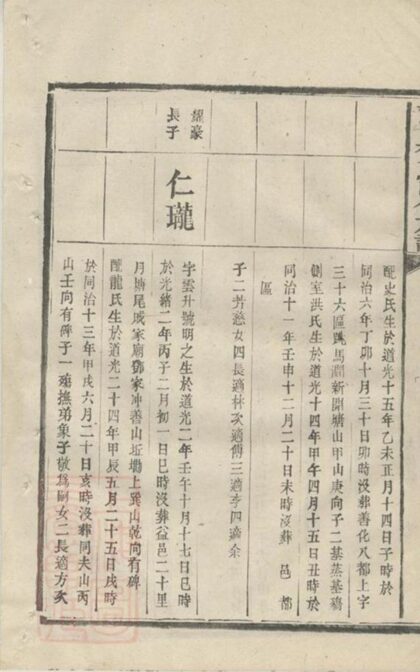 配史氏生於道光十五年乙未正月十四日子時於
同治六年丁卯十月三十日卯時沒葬善化八都上字
三十六區跳馬澗新開塘山甲山庚向子二基蒸基鴻
側室洪氏生於道光十四年甲午四月十五日丑時於
同治十一年壬申十二月二十日未時沒葬 邑 都
區
子二芳慈女四長適林次適傅三適李四適余
耀豪
長子
仁瓏
字雲升號明之生於道光二年壬午十月十七日巳時
於光緒二年丙子二月初 日巳時沒葬益邑二十里
月塘尾戚家廟鄧家沖善山坵墈上巽山乾向有碑
配龍氏生於道光二十四年甲辰五月二十五日戌時
於同治十三年甲戌六月二十日亥時沒葬同夫山丙
山壬向有碑子一殤撫弟象子敬為嗣女二長適方次